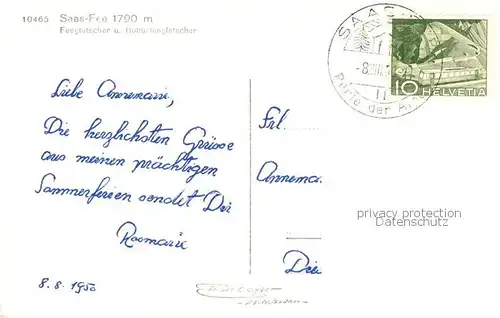 10465 Saas-Fee 1790 m
Feegletscher u.
SAAS-
-8.VIII.5
Perle der A
10
HELVETIA
Liebe Annemarie,
Die herzlichsten Grüsse
aus meinen prächtigen
Sommerferien sendet Dir
Rosmarie
8.8.1950
Frl.
Annema
privacy protection
Datenschutz